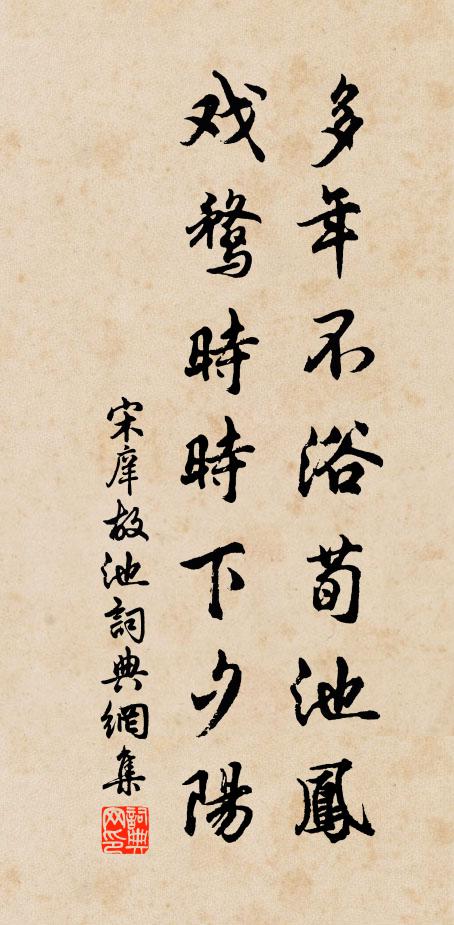 多年不浴荀池鳳
戏鶩時時下夕陽
宋庠故池詞典網集
詞典网印